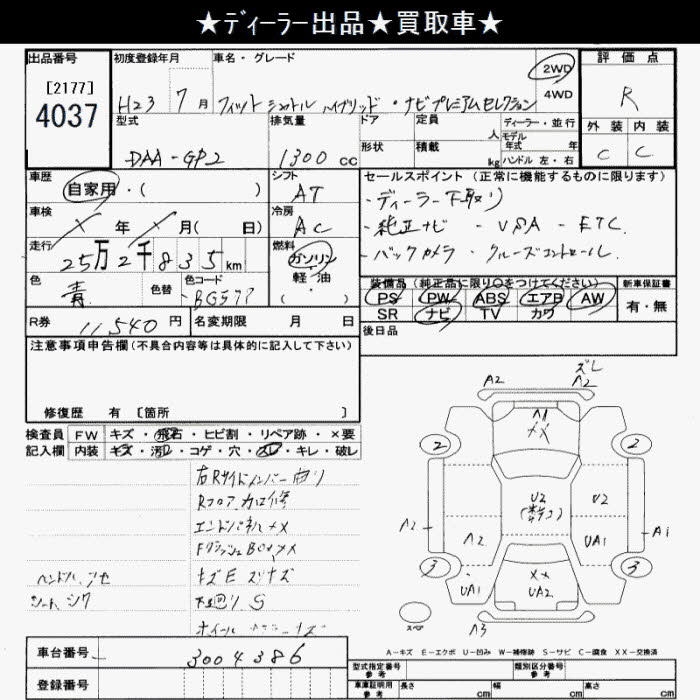 ★ディーラー出品★買取車★
出品番号
[2177]
4037
初度登録年月
H23 7月
車名・グレード
フィットシャトルハイブリッド・ナビプレミアムセレクション
2WD
4WD
評価点
R
外装 内装
C C
型式
DAA-GP2
排気量
1300 cc
ドア
形状
定員 人
積載 kg
ディーラー・並行
モデル
年式 年
ハンドル 左・右
車歴
自家用・( )
シフト
AT
車検
年 月( 日)
冷房
AC
走行
25万2千835km
燃料
ガソリン
軽油
( )
色
青
色替
色コード
BG577
R券 11,540円
名変期限 月 日
セールスポイント(正常に機能するものに限ります)
・ディーラー下取り
・純正ナビ・VSA・ETC
・バックカメラ・クルーズコントロール
装備品(純正品に限り○をつけてください)
PS PW ABS エアB AW
SR ナビ TV カワ
新車保証書
有・無
後日品
注意事項申告欄(不具合内容等は具体的に記入して下さい)
修復歴 有 [箇所 ]
検査員
記入欄
FW キズ・飛石・ヒビ割・リペア跡・×要
内装 キズ・汚レ・コゲ・穴・スレ・キレ・破レ
右Rサイドメンバー曲り
Rフロア カロ修
エンドパネル××
キズE スリキズ
下廻りS
ズレ
A2 A2
A1
××
2 2
U2
U2
A2
A2
UA1
A1
3 3
UA1
××
UA2
A3
スペア
A-キズ E-エクボ U-凹み W-補修跡 S-サビ C-腐食 XX-交換済
車台番号
3004386
登録番号
型式指定番号
参考
類別区分番号
参考
車庫証明用
参考
長さ cm
幅 cm
高さ cm